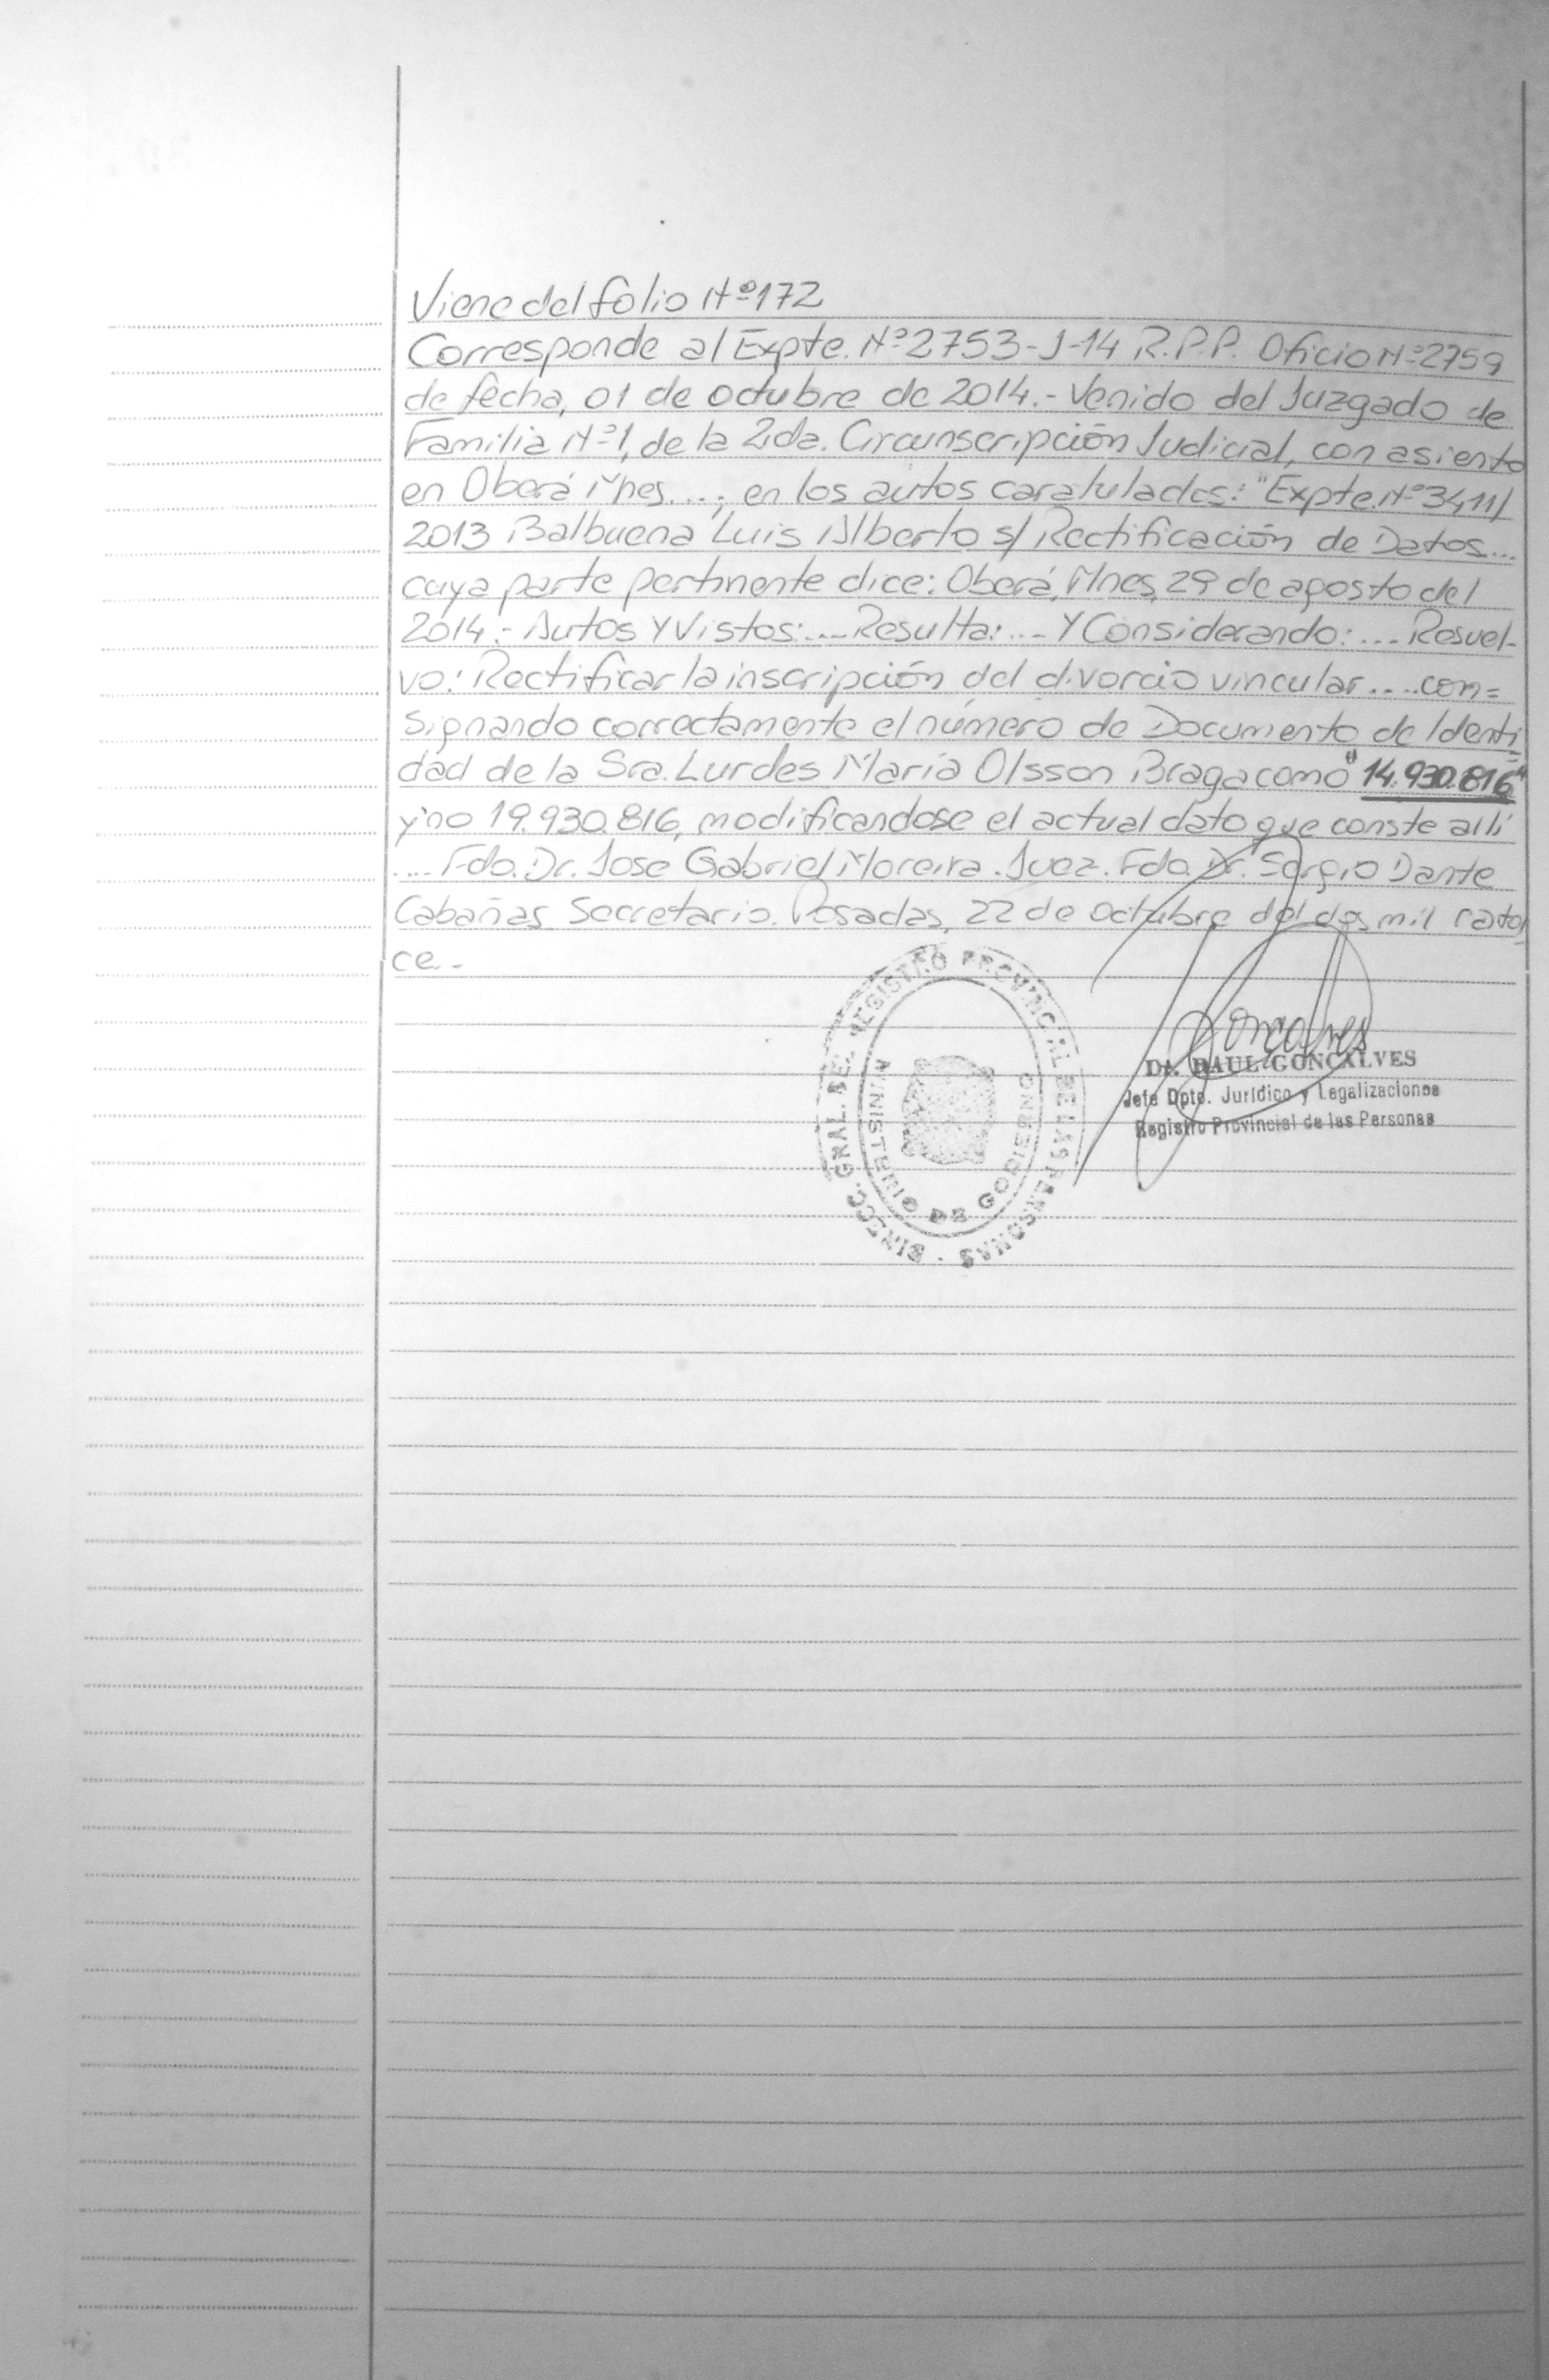 Viene del folio Nº 172
Corresponde al Expte. Nº 2753-J-14 R.P.P. Oficio Nº 2759
de fecha, 01 de octubre de 2014.- Venido del Juzgado de
Familia Nº 1, de la 2da. Circunscripción Judicial, con asiento
en Oberá Mnes...., en los autos caratulados: "Expte. Nº 3411/
2013 Balbuena Luis Alberto s/ Rectificación de Datos...
cuya parte pertinente dice: Oberá, Mnes, 29 de agosto del
2014.- Autos Y Vistos:.... Resulta:.... Y Considerando:.... Resuel-
vo: Rectificar la inscripción del divorcio vincular.... con=
signando correctamente el número de Documento de Identi-
dad de la Sra. Lurdes María Olsson Braga como "14.930.816"
y no 19.930.816, modificandose el actual dato que conste allí
.... Fdo. Dr. Jose Gabriel Moreira. Juez. Fdo. Dr. Sergio Dante
Cabañas Secretario. Posadas, 22 de Octubre del dos mil cator
ce.-
DIRECC. GRAL. DEL REGISTRO PROVINCIAL DE LAS PERSONAS
MINISTERIO DE GOBIERNO
Goncalves
Dr. RAUL GONCALVES
Jefe Dpto. Jurídico y Legalizaciones
Registro Provincial de las Personas